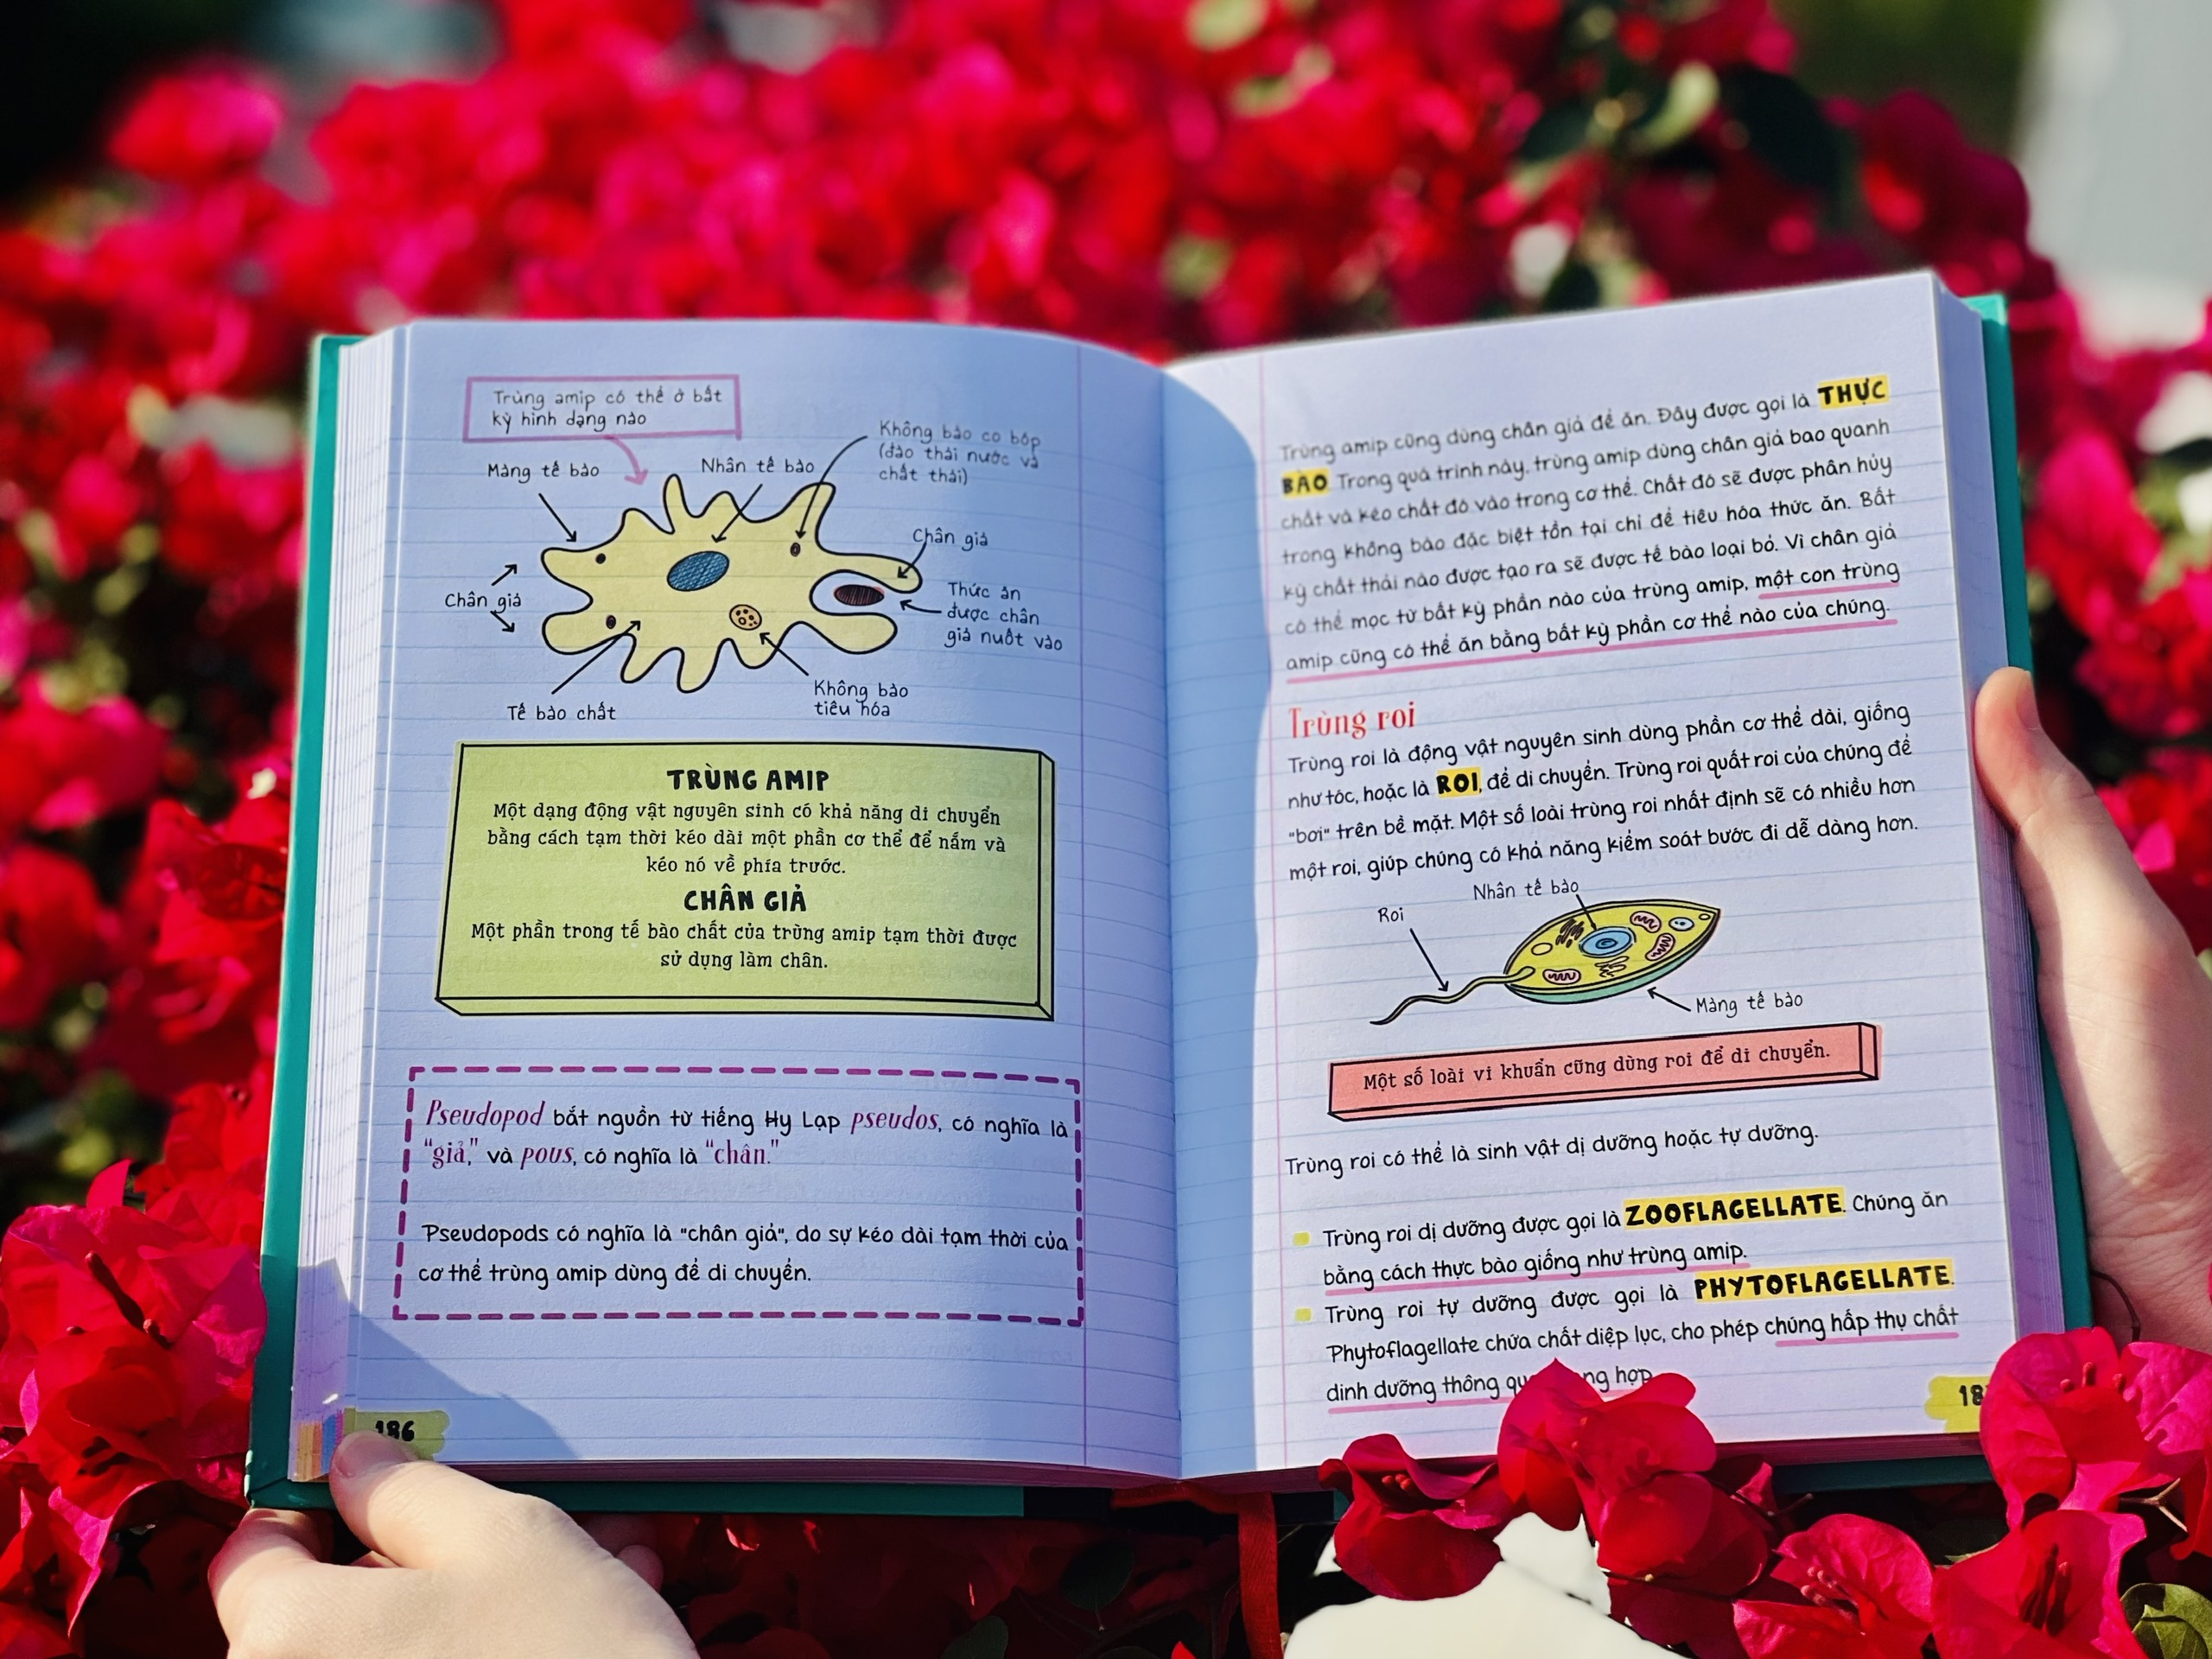 Trùng amip có thể ở bất
kỳ hình dạng nào
Màng tế bào
Nhân tế bào
Không bào co bóp
(đào thải nước và
chất thải)
Chân giả
Chân giả
Thức ăn
được chân
giả nuốt vào
Tế bào chất
Không bào
tiêu hóa
TRÙNG AMIP
Một dạng động vật nguyên sinh có khả năng di chuyển
bằng cách tạm thời kéo dài một phần cơ thể để nắm và
kéo nó về phía trước.
CHÂN GIẢ
Một phần trong tế bào chất của trùng amip tạm thời được
sử dụng làm chân.
Pseudopod bắt nguồn từ tiếng Hy Lạp pseudos, có nghĩa là
"giả," và pous, có nghĩa là "chân."
Pseudopods có nghĩa là "chân giả", do sự kéo dài tạm thời của
cơ thể trùng amip dùng để di chuyển.
186
Trùng amip cũng dùng chân giả để ăn. Đây được gọi là THỰC
BÀO Trong quá trình này, trùng amip dùng chân giả bao quanh
chất và kéo chất đó vào trong cơ thể. Chất đó sẽ được phân hủy
trong không bào đặc biệt tồn tại chỉ để tiêu hóa thức ăn. Bất
kỳ chất thải nào được tạo ra sẽ được tế bào loại bỏ. Vì chân giả
có thể mọc từ bất kỳ phần nào của trùng amip, một con trùng
amip cũng có thể ăn bằng bất kỳ phần cơ thể nào của chúng.
Trùng roi
Trùng roi là động vật nguyên sinh dùng phần cơ thể dài, giống
như tóc, hoặc là ROI, để di chuyển. Trùng roi quất roi của chúng để
"bơi" trên bề mặt. Một số loài trùng roi nhất định sẽ có nhiều hơn
một roi, giúp chúng có khả năng kiểm soát bước đi dễ dàng hơn.
Nhân tế bào
Roi
Màng tế bào
Một số loài vi khuẩn cũng dùng roi để di chuyển.
Trùng roi có thể là sinh vật dị dưỡng hoặc tự dưỡng.
Trùng roi dị dưỡng được gọi là ZOOFLAGELLATE. Chúng ăn
bằng cách thực bào giống như trùng amip.
Trùng roi tự dưỡng được gọi là PHYTOFLAGELLATE.
Phytoflagellate chứa chất diệp lục, cho phép chúng hấp thụ chất
dinh dưỡng thông hợp